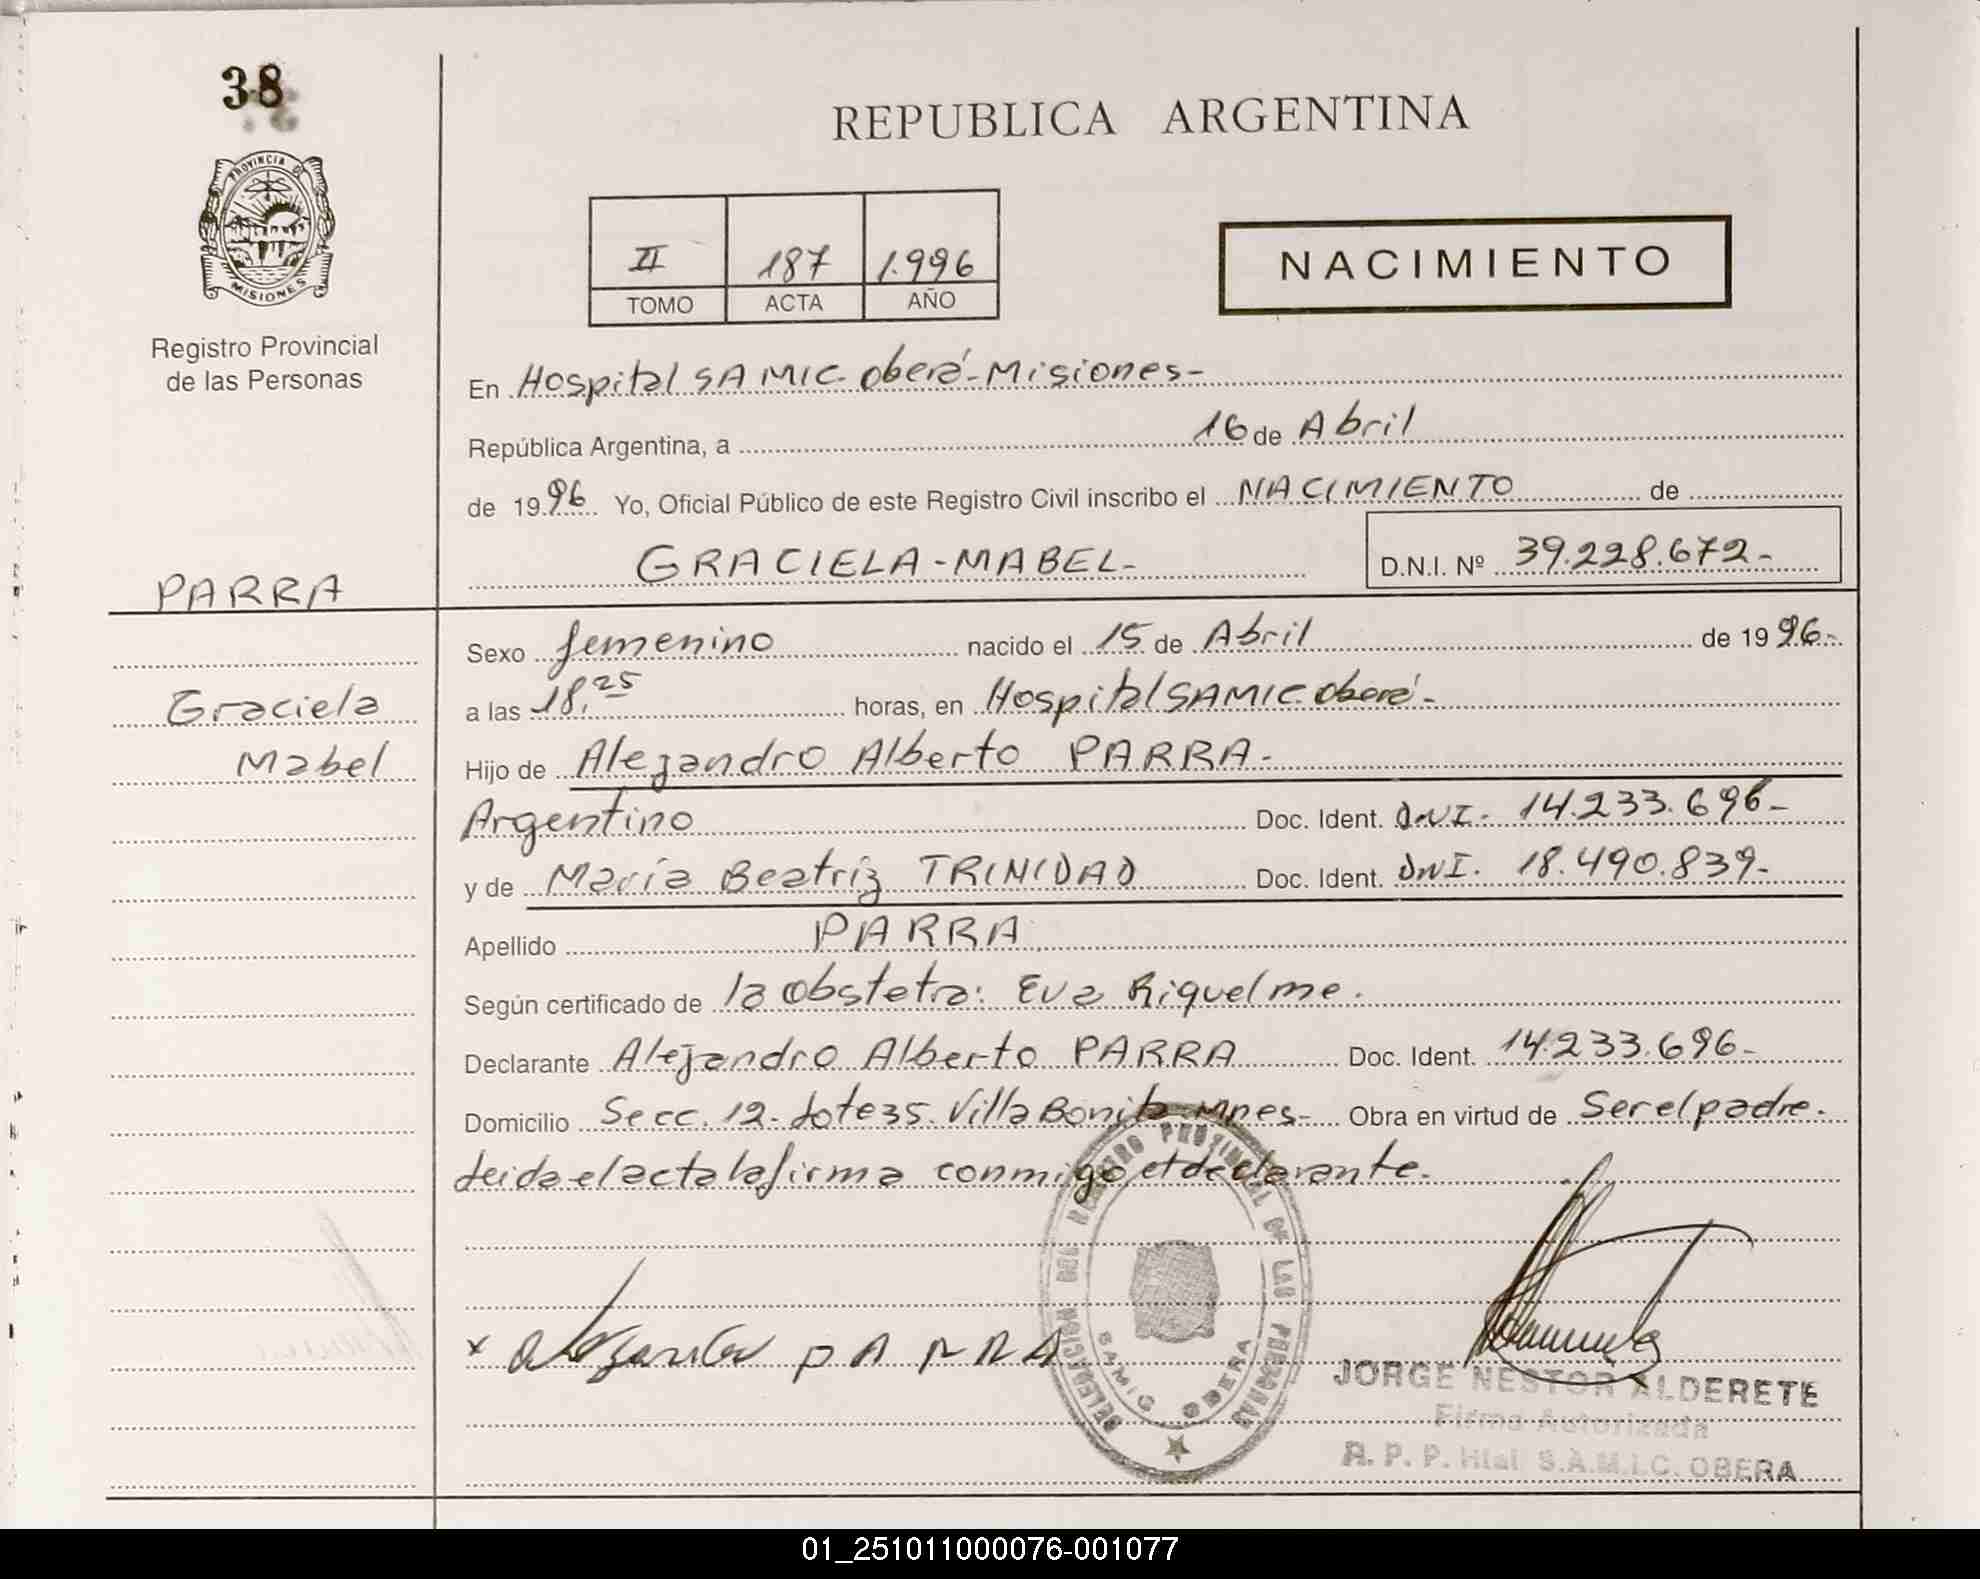 38
PROVINCIA DE
MISIONES
Registro Provincial
de las Personas
PARRA
Graciela
Mabel
REPUBLICA ARGENTINA
II 187 1.996
TOMO ACTA AÑO
NACIMIENTO
En Hospital SAMIC Oberá-Misiones-
República Argentina, a 16 de Abril
de 1996 Yo, Oficial Público de este Registro Civil inscribo el NACIMIENTO de
GRACIELA-MABEL- D.N.I. Nº 39.228.672-
Sexo femenino nacido el 15 de Abril de 1996-
a las 18,25 horas, en Hospital SAMIC Oberá-
Hijo de Alejandro Alberto PARRA-
Argentino Doc. Ident. DNI. 14.233.696-
y de María Beatriz TRINIDAD Doc. Ident. DNI. 18.490.839-
Apellido PARRA
Según certificado de la obstetra: Eva Riquelme.
Declarante Alejandro Alberto PARRA Doc. Ident. 14.233.696-
Domicilio Secc. 12- Lote 35. Villa Bonita Mnes- Obra en virtud de Ser el padre.
Leida el acta la firma conmigo el declarante.
DELEGACION DEL REGISTRO PROVINCIAL DE LAS PERSONAS
SAMIC OBERA
x Alejandro PARRA
JORGE NESTOR ALDERETE
Firma Autorizada
R. P. P. Htal S.A.M.I.C. OBERA
01_251011000076-001077